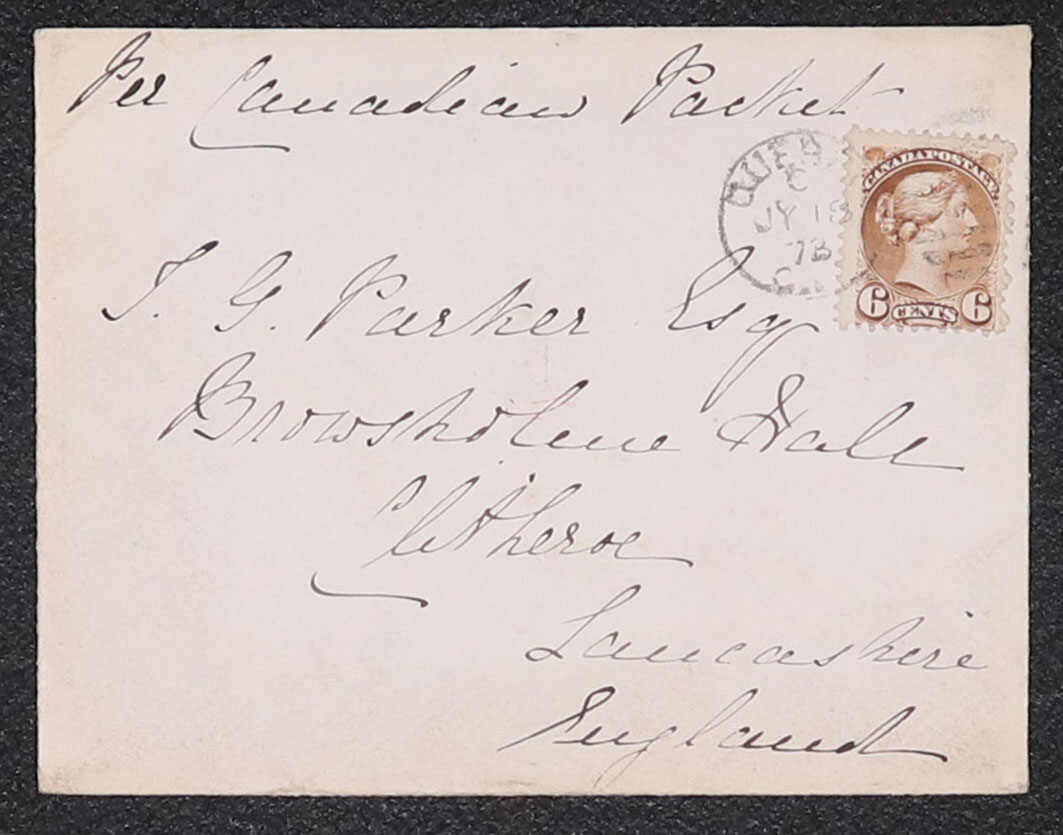 Per Canadian Packet
QUEB
C
JY 18
78
C.
CANADA POSTAGE
6 CENTS 6
T. G. Parker Esq
Browsholme Hall
Clitheroe
Lancashire
England